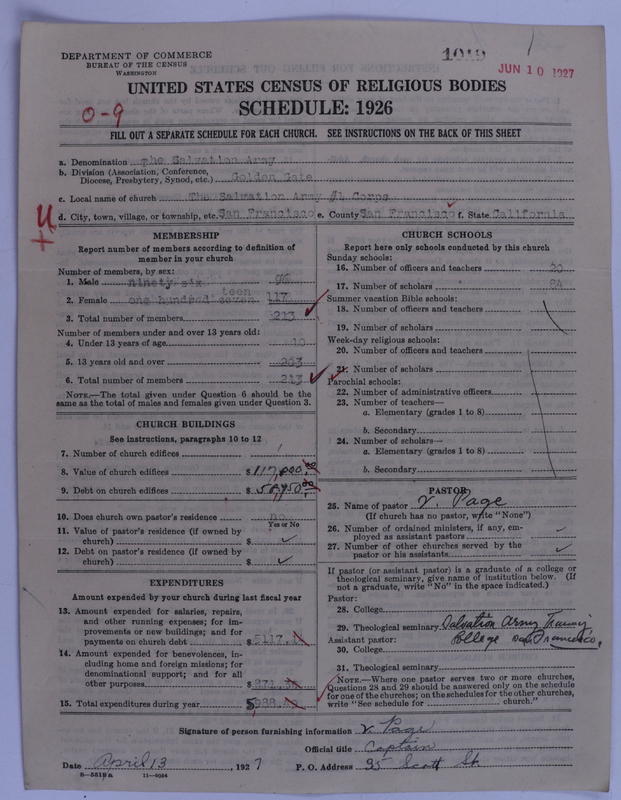 DEPARTMENT OF COMMERCE
BUREAU OF THE CENSUS
WASHINGTON
1019
JUN 10 1927
UNITED STATES CENSUS OF RELIGIOUS BODIES
SCHEDULE: 1926
0-9
FILL OUT A SEPARATE SCHEDULE FOR EACH CHURCH. SEE INSTRUCTIONS ON THE BACK OF THIS SHEET
a. Denomination the Salvation Army
b. Division (Association, Conference,
Diocese, Presbytery, Synod, etc.) Golden Gate
c. Local name of church The Salvation Army #1 Corps
d. City, town, village, or township, etc. San Francisco e. County San Francisco f. State California
MEMBERSHIP
Report number of members according to definition of
member in your church
Number of members, by sex:
1. Male ninety six 96
2. Female one hundred seventeen 117
3. Total number of members 213
Number of members under and over 13 years old:
4. Under 13 years of age 10
5. 13 years old and over 203
6. Total number of members 213
NOTE.—The total given under Question 6 should be the
same as the total of males and females given under Question 3.
CHURCH BUILDINGS
See instructions, paragraphs 10 to 12
7. Number of church edifices 1
8. Value of church edifices $ 117,000.00
9. Debt on church edifices $
10. Does church own pastor's residence no
Yes or No
11. Value of pastor's residence (if owned by
church) $
12. Debt on pastor's residence (if owned by
church) $
EXPENDITURES
Amount expended by your church during last fiscal year
13. Amount expended for salaries, repairs,
and other running expenses; for im-
provements or new buildings; and for
payments on church debt $ 5117.
14. Amount expended for benevolences, in-
cluding home and foreign missions; for
denominational support; and for all
other purposes $
15. Total expenditures during year $
CHURCH SCHOOLS
Report here only schools conducted by this church
Sunday schools:
16. Number of officers and teachers 20
17. Number of scholars 84
Summer vacation Bible schools:
18. Number of officers and teachers
19. Number of scholars
Week-day religious schools:
20. Number of officers and teachers
21. Number of scholars
Parochial schools:
22. Number of administrative officers
23. Number of teachers—
a. Elementary (grades 1 to 8)
b. Secondary
24. Number of scholars—
a. Elementary (grades 1 to 8)
b. Secondary
PASTOR
25. Name of pastor V. Page
(If church has no pastor, write "None")
26. Number of ordained ministers, if any, em-
ployed as assistant pastors
27. Number of other churches served by the
pastor or his assistants
If pastor (or assistant pastor) is a graduate of a college or
theological seminary, give name of institution below. (If
not a graduate, write "No" in the space indicated.)
Pastor:
28. College
29. Theological seminary Salvation Army Training
Assistant pastor: College San Francisco,
30. College
31. Theological seminary
NOTE.—Where one pastor serves two or more churches,
Questions 28 and 29 should be answered only on the schedule
for one of the churches; on the schedules for the other churches,
write "See schedule for church."
Signature of person furnishing information V. Page
Official title Captain
Date April 13, 1927 P. O. Address 95 Scott St.
8—5518a 11—9034